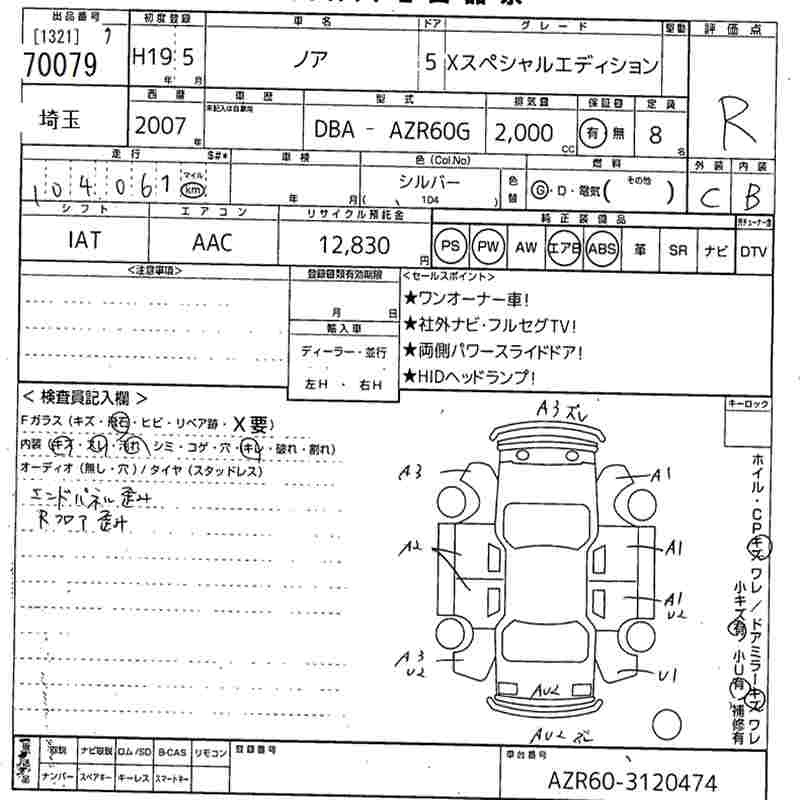 出品番号 初度登録 車名 ドア グレード 駆動 評価点
[1321]
70079 H19 5 ノア 5 Xスペシャルエディション R
年 月
西暦 車歴 型式 排気量 保証書 定員
未記入は自家用
埼玉 2007 年 DBA - AZR60G 2,000 CC 有 無 8 名
走行 S#* 車検 色(Col.No) 燃料 外装 内装
104,061 マイル km 年 月 シルバー ( 104 ) 色替 G・D・電気( その他 ) C B
シフト エアコン リサイクル預託金 純正装備品
IAT AAC 12,830 円 PS PW AW エアB ABS 革 SR ナビ DTV
<注意事項> 登録書類有効期限 <セールスポイント>
月 日 ★ワンオーナー車!
輸入車 ★社外ナビ・フルセグTV!
ディーラー・並行 ★両側パワースライドドア!
左H ・ 右H ★HIDヘッドランプ!
<検査員記入欄> キーロック
Fガラス(キズ・飛石・ヒビ・リペア跡・X要)
内装(キズ・スレ・汚れ・シミ・コゲ・穴・キレ・破れ・割れ)
オーディオ(無し・穴)/タイヤ(スタッドレス)
エンドパネル歪み
Rフロア歪み
A3ズレ
A3 A1
A2 A1
A1
U2
A3
U2 U1
AU2
AU2 ズレ
ホイル・CPキズ ワレ/ドアミラーキズ ワレ
小キズ有 小U有 補修有
取説 ナビ取説 ロム/SD B-CAS リモコン 登録番号 車台番号
ナンバー スペアキー キーレス スマートキー
AZR60-3120474